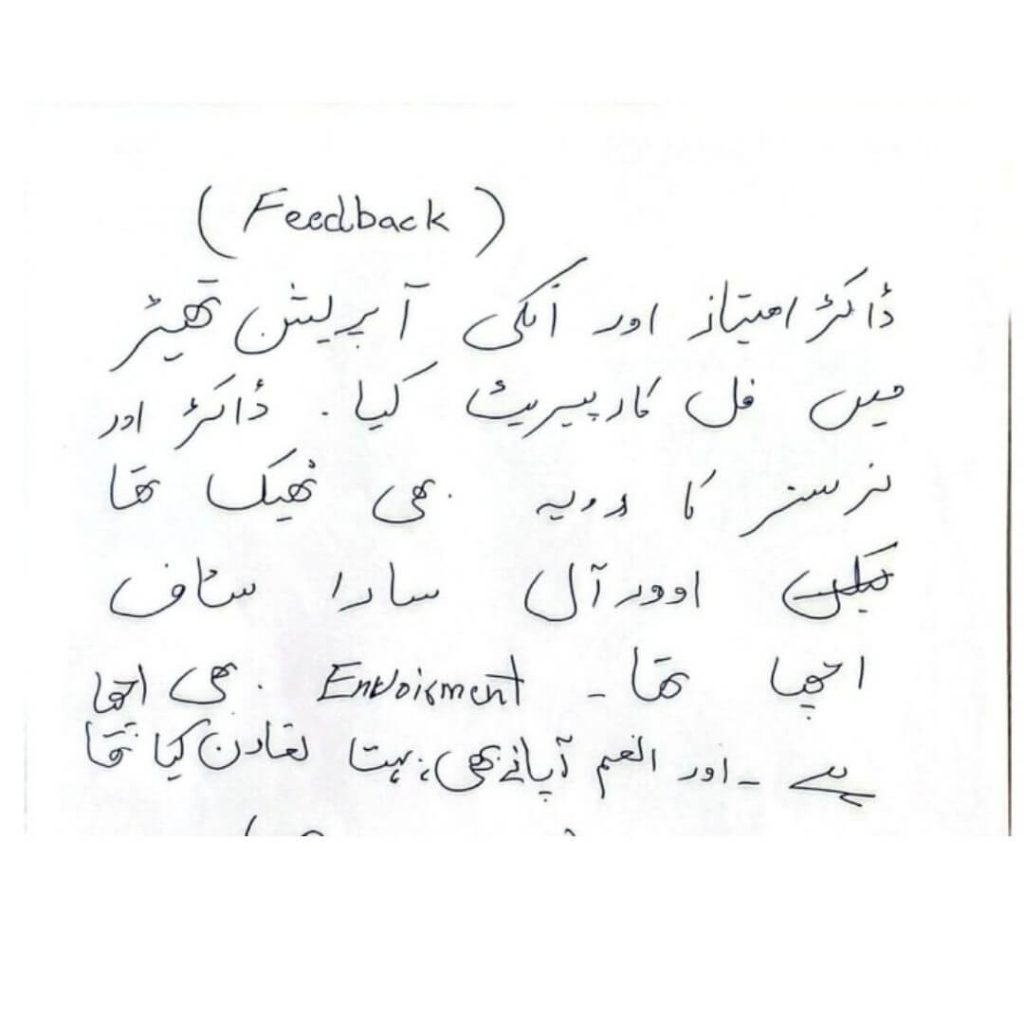 (Feedback)
ڈاکٹر امتیاز اور انکی آپریشن تھیٹر
میں فل کارپیریٹ کیا. ڈاکٹر اور
نرسنز کا رویہ بھی ٹھیک تھا
اوورآل سارا سٹاف
اچھا تھا۔ Envoirment بھی اچھا
ہے ۔ اور انعم آپا نے بھی بہت تعاون کیا تھا